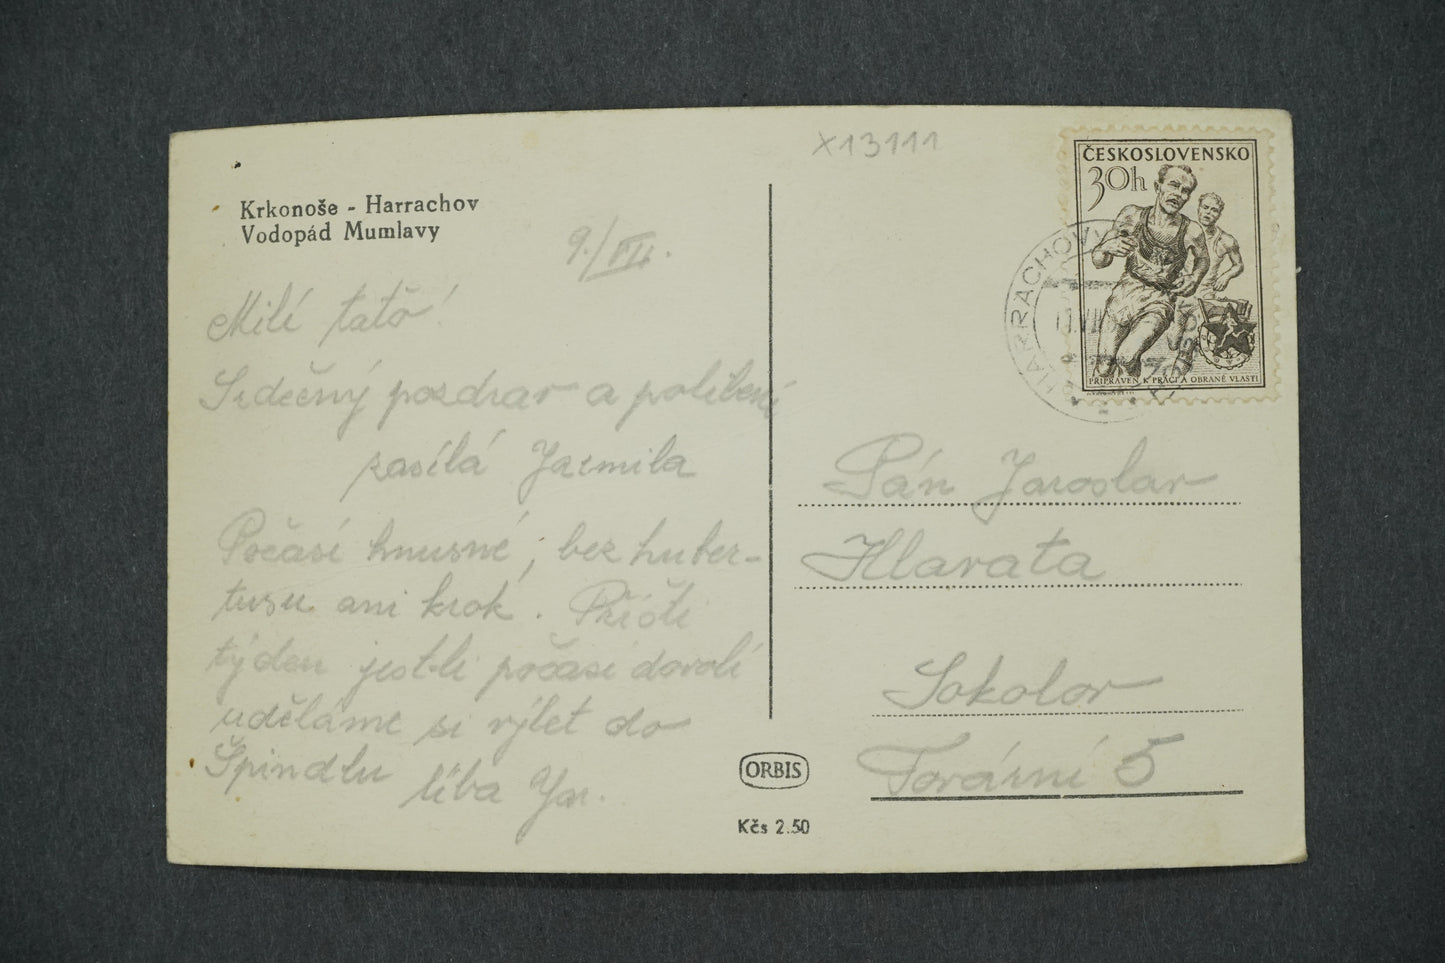 x13111
ČESKOSLOVENSKO
30h
PŘIPRAVEN K PRÁCI A OBRANĚ VLASTI
HARRACHOV
Krkonoše - Harrachov
Vodopád Mumlavy
9./VII.
Milí tatо̌!
Srdečný pozdrav a políbení
zasílá Jarmila
Počasí hnusné, bez huber-
tusu ani krok. Příští
týden jest-li počasí dovolí
uděláme si výlet do
Špindlu líbá Jar.
Pán Jaroslav
Hlavata
Sokolov
Tovární 5
ORBIS
Kčs 2.50